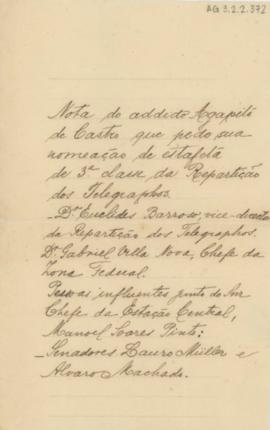 AG 3.2.2.372
Nota do addido Agapito
de Castro que pede sua
nomeação de estafeta
de 3ª classe da Repartição
dos Telegraphos.
– Dr. Euclides Barroso, vice-director
da Repartição dos Telegraphos.
Dr. Gabriel Villa Nova, Chefe da
Zona Federal.
Pessoas influentes junto do Snr
Chefe da Estação Central,
Manoel Soares Pinto:
– Senadores Lauro Müller e
Alvaro Machado.